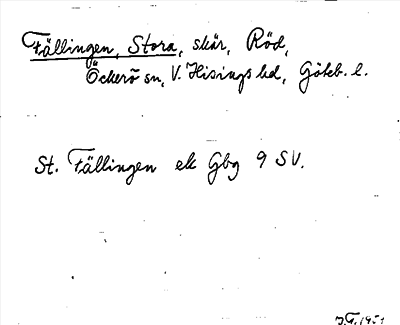 Fällingen, Stora, skär, Röd,
Öckerö sn, V. Hisings hd, Göteb. l.
St. Fällingen ek Gbg 9 SV.